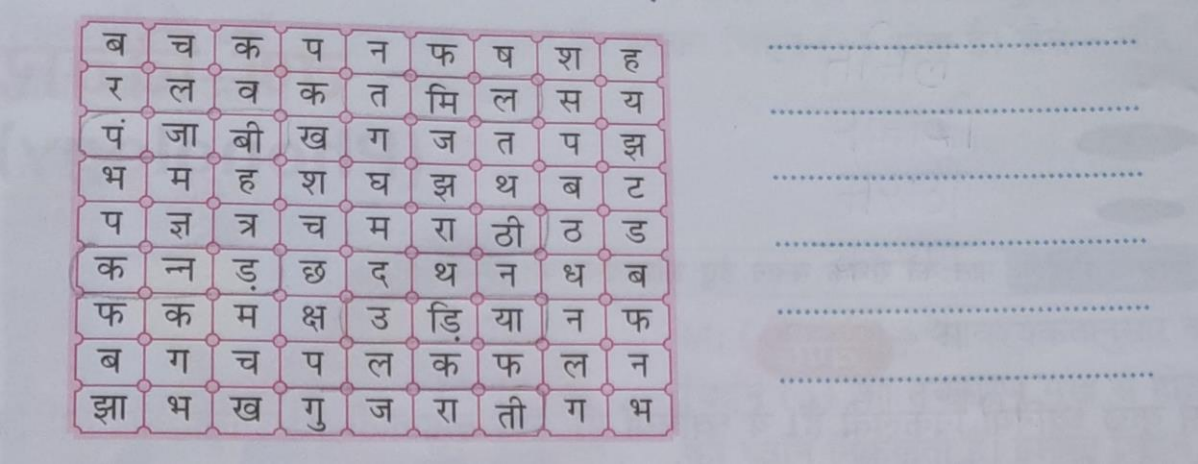 ब च क प न फ ष श ह
र ल व क त मि ल स य
पं जा बी ख ग ज त प झ
भ म ह श घ झ थ ब ट
प ज्ञ त्र च म रा ठी ठ ड
क न्न ड़ छ द थ न ध ब
फ क म क्ष उ ड़ि या न फ
ब ग च प ल क फ ल न
झा भ ख गु ज रा ती ग भ